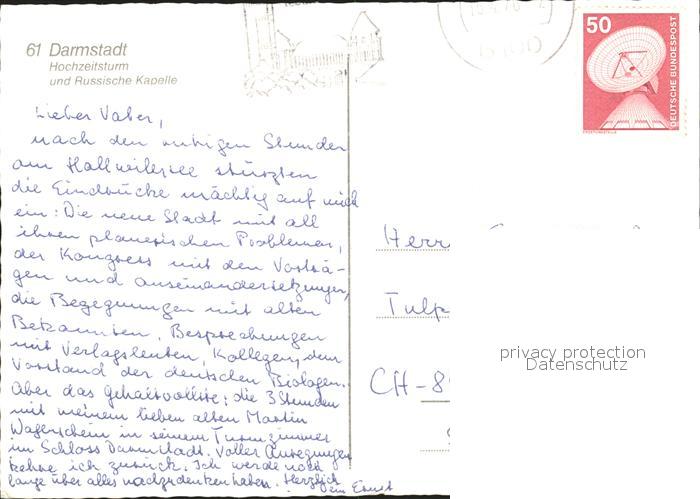 61 Darmstadt
Hochzeitsturm
und Russische Kapelle
50
DEUTSCHE BUNDESPOST
Lieber Vater,
nach den ruhigen Stunden
am Hallwilersee stürzten
die Eindrücke mächtig auf mich
ein: Die neue Stadt mit all
ihren planerischen Problemen,
der Kongress mit den Vorträ-
gen und Auseinandersetzungen,
die Begegnungen mit alten
Bekannten, Besprechungen
mit Verlagsleuten, Kollegen, dem
Vorstand der deutschen Biologen.
Aber das gehaltvollste: die 3 Stunden
mit meinem lieben alten Martin
Wagenschein in seinem Turmzimmer
im Schloss Darmstadt. Voller Anregungen
kehre ich zurück. Ich werde noch
lange über alles nachzudenken haben. Herzlich
dein Ernst
Herr
Tulp
CH-8
privacy protection
Datenschutz